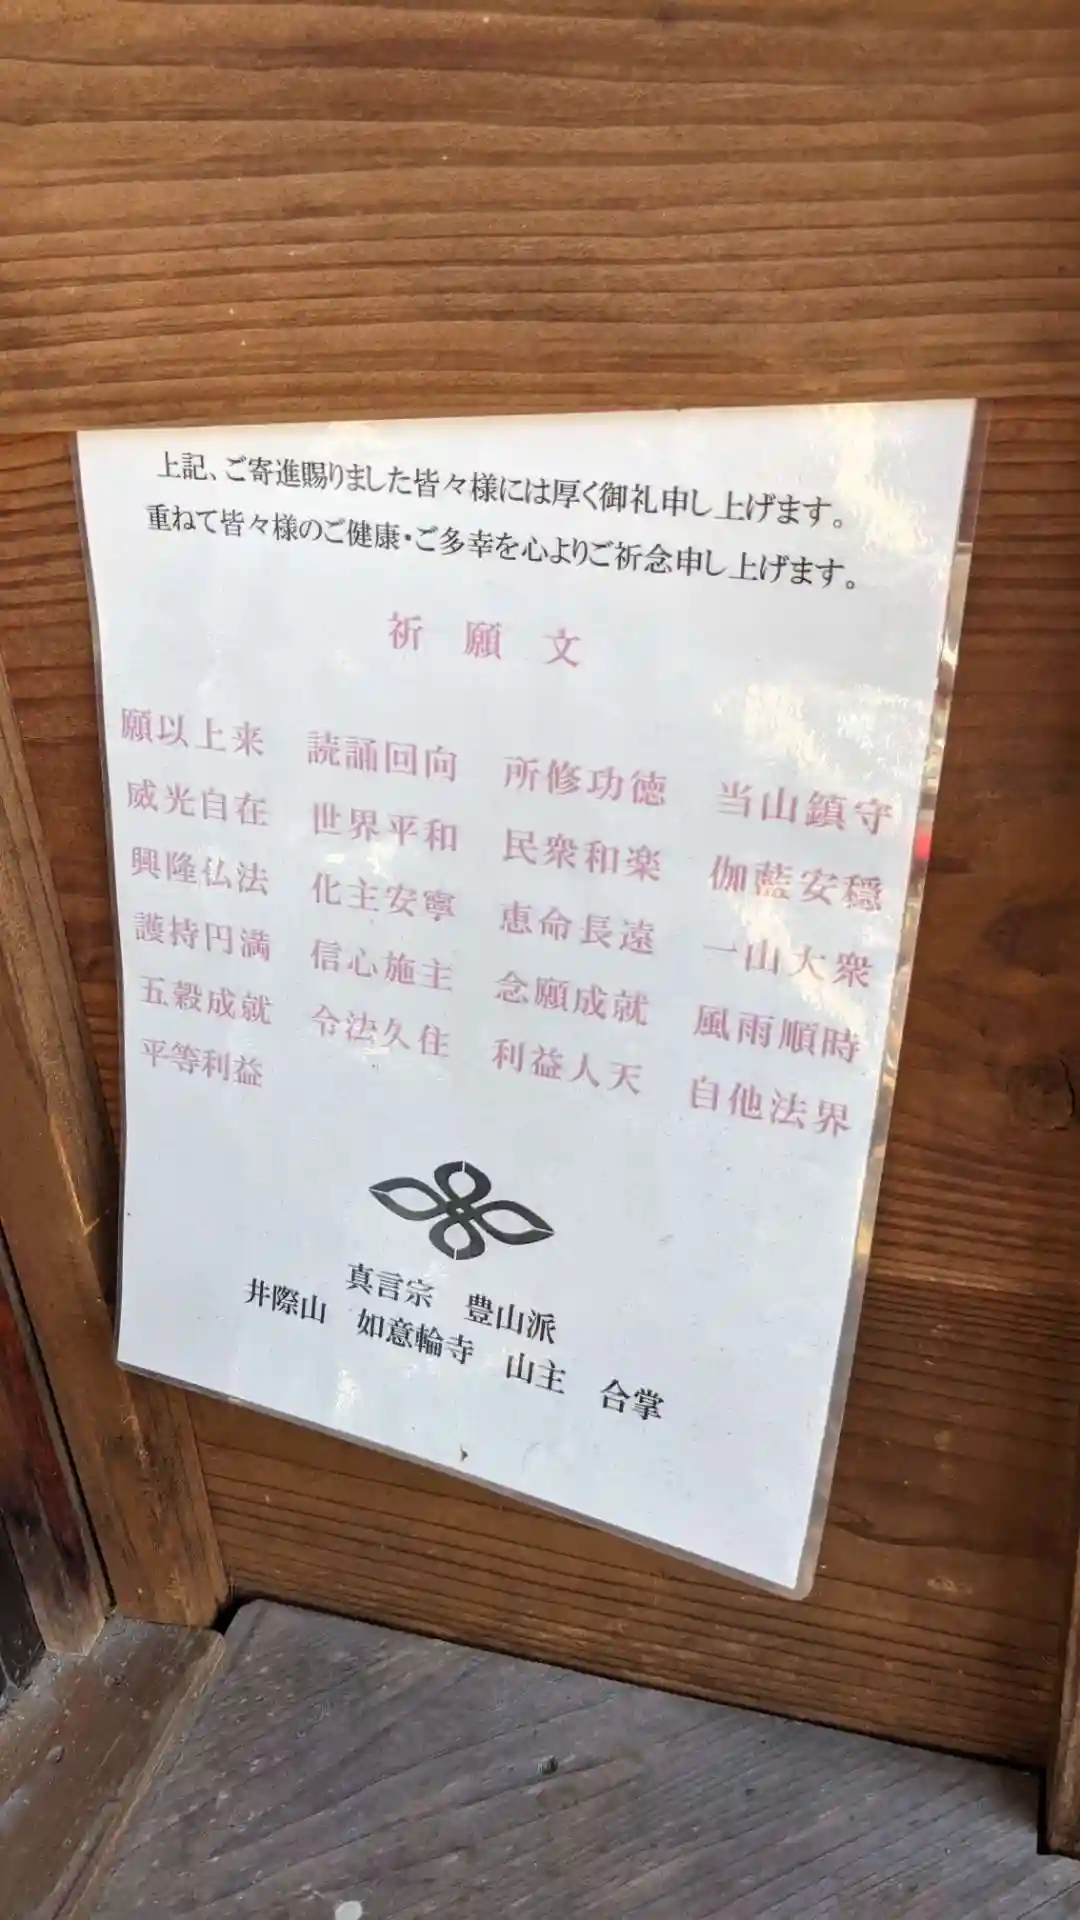 上記、ご寄進賜りました皆々様には厚く御礼申し上げます。
重ねて皆々様のご健康・ご多幸を心よりご祈念申し上げます。
祈 願 文
願以上来 読誦回向 所修功徳 当山鎮守
威光自在 世界平和 民衆和楽 伽藍安穏
興隆仏法 化主安寧 恵命長遠 一山大衆
護持円満 信心施主 念願成就 風雨順時
五穀成就 令法久住 利益人天 自他法界
平等利益
真言宗 豊山派
井際山 如意輪寺 山主 合掌